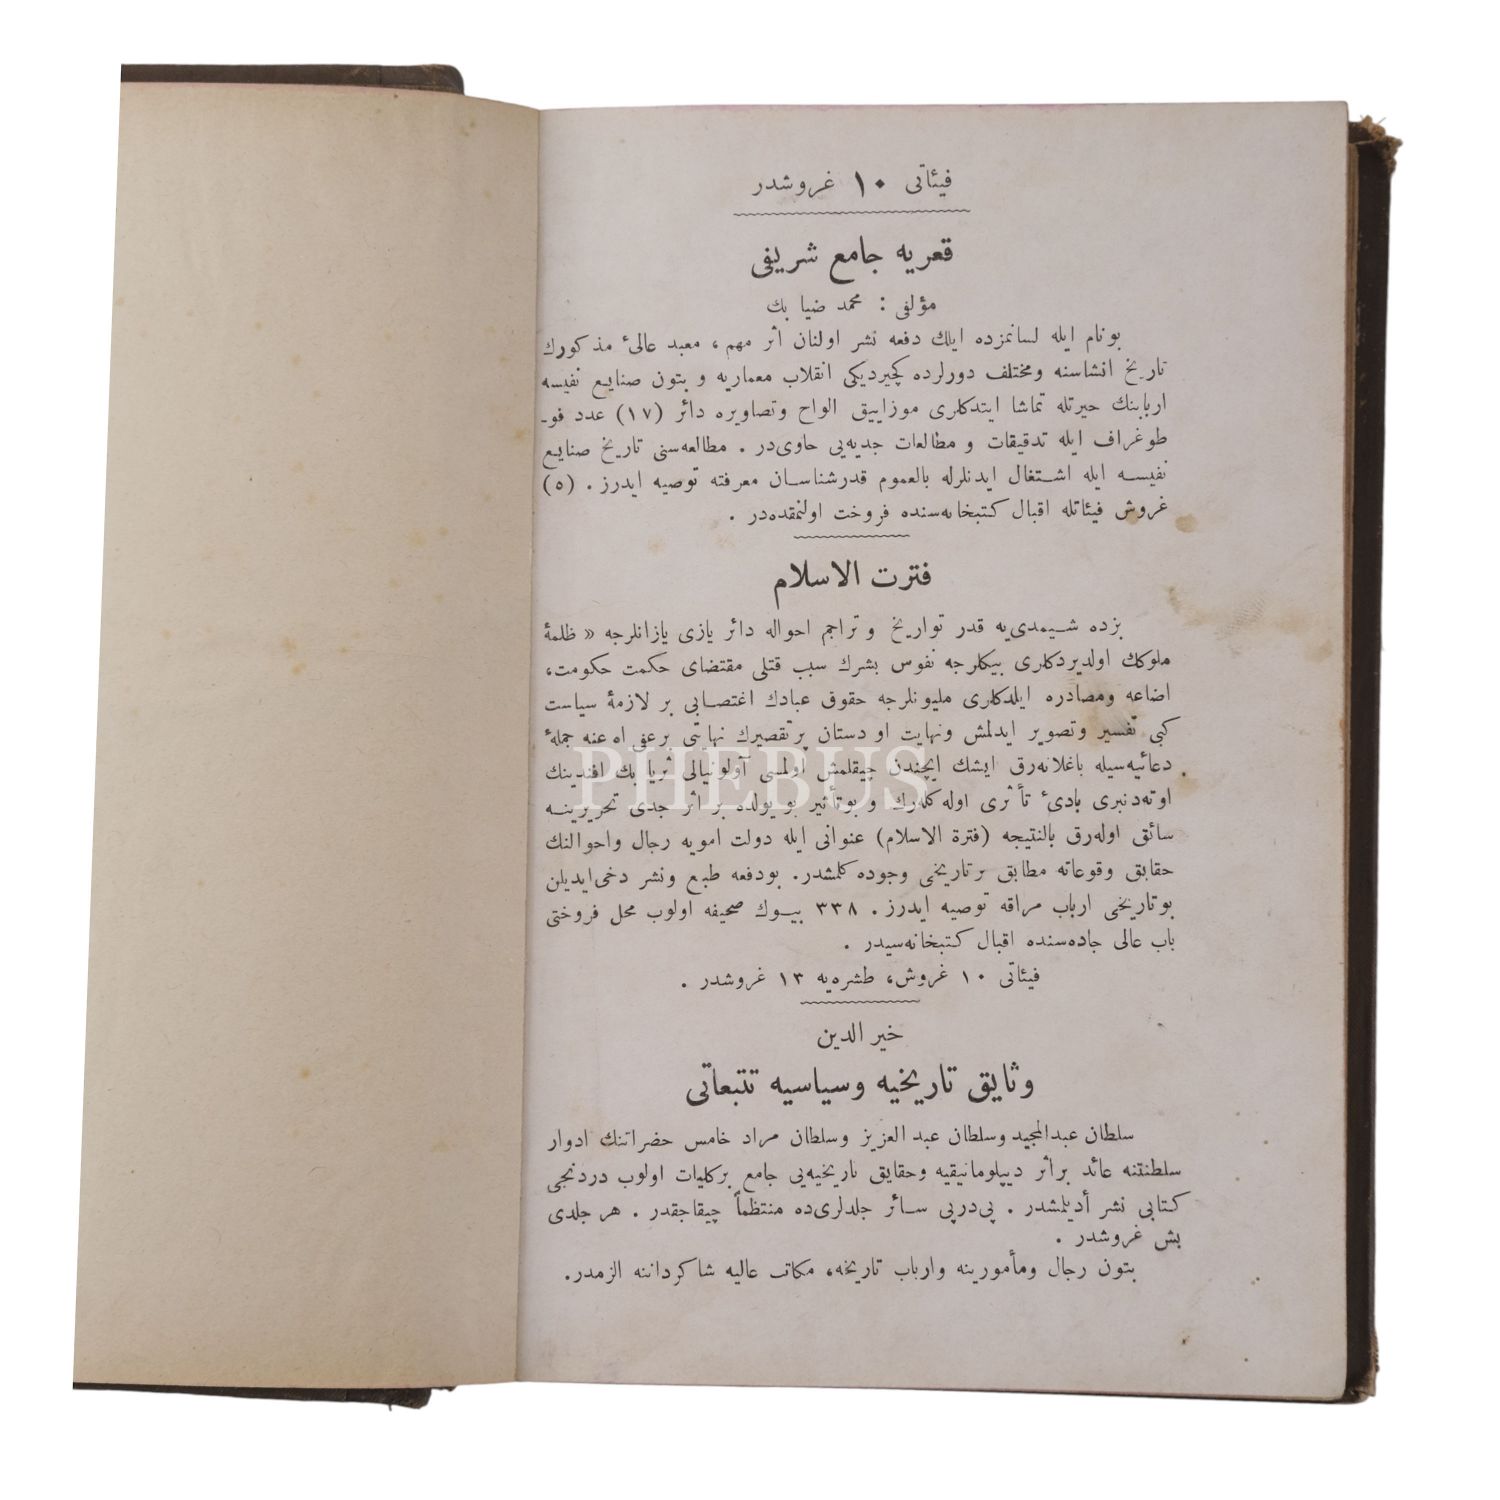 فیئاتی ۱۰ غروشدر
قعریه جامع شریفی
مؤلفی : محمد ضیا بك
بونام ایله لسانمزده ایلك دفعه نشر اولنان اثر مهم ، معبد عالیٔ مذكورك
تاریخ انشاسنه ومختلف دورلرده كچیردیكی انقلاب معماریه و بتون صنایع نفیسه
اربابنك حیرتله تماشا ایتدكلری موزاییق الواح وتصاویره دائر (۱۷) عدد فو-
طوغراف ایله تدقیقات و مطالعات جدیه‌یی حاوی‌در . مطالعه‌سنی تاریخ صنایع
نفیسه ایله اشتغال ایدنلرله بالعموم قدرشناسان معرفته توصیه ایدرز . (۵)
غروش فیئاتله اقبال كتبخانه‌سنده فروخت اولنمقده‌در .
فترت الاسلام
بزده شیمدی‌یه قدر تواریخ و تراجم احواله دائر یازی یازانلرجه « ظلمهٔ
ملوكك اولدیردكلری بیكلرجه نفوس بشرك سبب قتلی مقتضای حكمت حكومت،
اضاعه ومصادره ایلدكلری ملیونلرجه حقوق عبادك اغتصابی بر لازمهٔ سیاست
كبی تفسیر وتصویر ایدلمش ونهایت او دستان پرتقصیرك نهایتی برعفی اه عنه جملهٔ
دعائیه‌سیله باغلانه‌رق ایشك ایچندن چیقلمش اولمسی آولونیالی ثریا بك افندینك
اوته‌دنبری بادیٔ تأثری اوله‌كله‌رك و بوتأثیر بو یولده بر اثر جدی تحریرینه
سائق اوله‌رق بالنتیجه (فترة الاسلام) عنوانی ایله دولت امویه رجال واحوالنك
حقایق وقوعاته مطابق برتاریخی وجوده كلمشدر. بودفعه طبع ونشر دخی‌ایدیلن
بوتاریخی ارباب مراقه توصیه ایدرز . ۳۳۸ بیوك صحیفه اولوب محل فروختی
باب عالی جاده‌سنده اقبال كتبخانه‌سیدر .
فیئاتی ۱۰ غروش، طشره‌یه ۱۳ غروشدر .
خیر الدین
وثایق تاریخیه وسیاسیه تتبعاتی
سلطان عبدالمجید وسلطان عبد العزیز وسلطان مراد خامس حضراتنك ادوار
سلطنتنه عائد براثر دیپلوماتیقیه وحقایق تاریخیه‌یی جامع بركلیات اولوب دردنجی
كتابی نشر أدیلمشدر . پی‌درپی سائر جلدلری‌ده منتظماً چیقاجقدر . هر جلدی
بش غروشدر .
بتون رجال ومأمورینه وارباب تاریخه، مكاتب عالیه شاكرداننه الزمدر.
PHEBUS